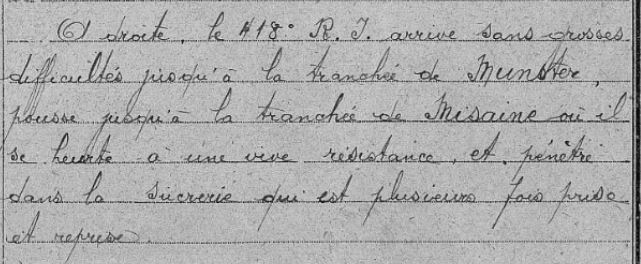 A droite, le 418° R. I. arrive sans grosses
difficultés jusqu'à la tranchée de Munster,
pousse jusqu'à la tranchée de Misaine où il
se heurte à une vive résistance, et pénètre
dans la sucrerie qui est plusieurs fois prise
et reprise.